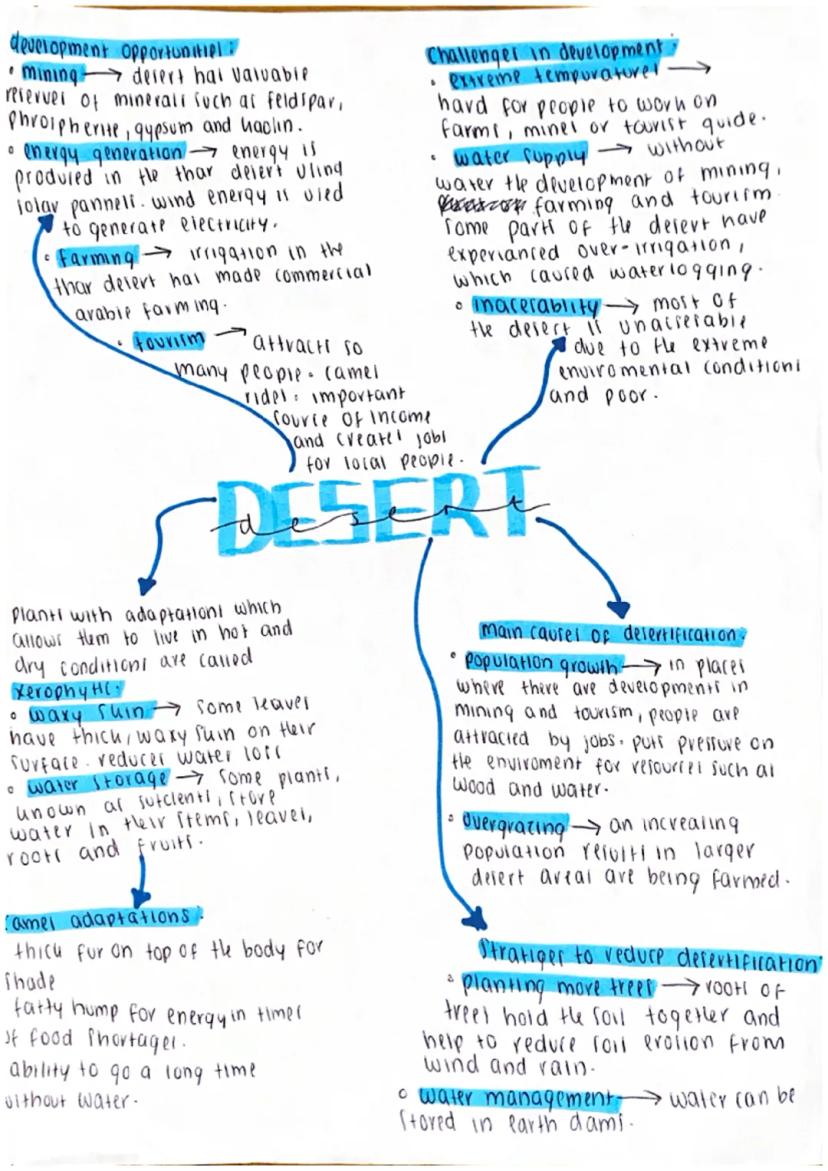 development opportunities:
• mining → desert has valuable
reserves of minerals such as feldspar,
phrospherite, gypsum and kaolin.
• energy generation → energy is
produced in the thar desert using
solar pannels. wind energy is used
to generate electricity.
• farming → irrigation in the
thar desert has made commercial
arable farming.
• tourism → attracts so
many people. camel
rides: important
source of income
and creates jobs
for local people.
Challenges in development:
• extreme tempuratures →
hard for people to work on
farms, mines or tourist guide.
• water supply → without
water the development of mining,
farming and tourism.
some parts of the desert have
experianced over-irrigation,
which caused waterlogging.
• inaccerablity → most of
the desert is unaccerable
due to the extreme
enviromental conditions
and poor.
DESERT
desert
plants with adaptations which
allows them to live in hot and
dry conditions are called
xerophytic:
• waxy skin → some leaves
have thick, waxy skin on their
surface. reduces water loss
• water storage → some plants,
known as sutclents, store
water in their stems, leaves,
roots and fruits.
camel adaptations:
thick fur on top of the body for
shade
fatty hump for energy in times
of food shortages.
ability to go a long time
without water.
main causes of desertification:
• population growth → in places
where there are developments in
mining and tourism, people are
attracted by jobs. puts pressure on
the enviroment for resources such as
wood and water.
• overgrazing → an increasing
population results in larger
desert areas are being farmed.
stratiges to reduce desertification
• planting more trees → roots of
trees hold the soil together and
help to reduce soil erosion from
wind and rain.
• water management → water can be
stored in earth dams.